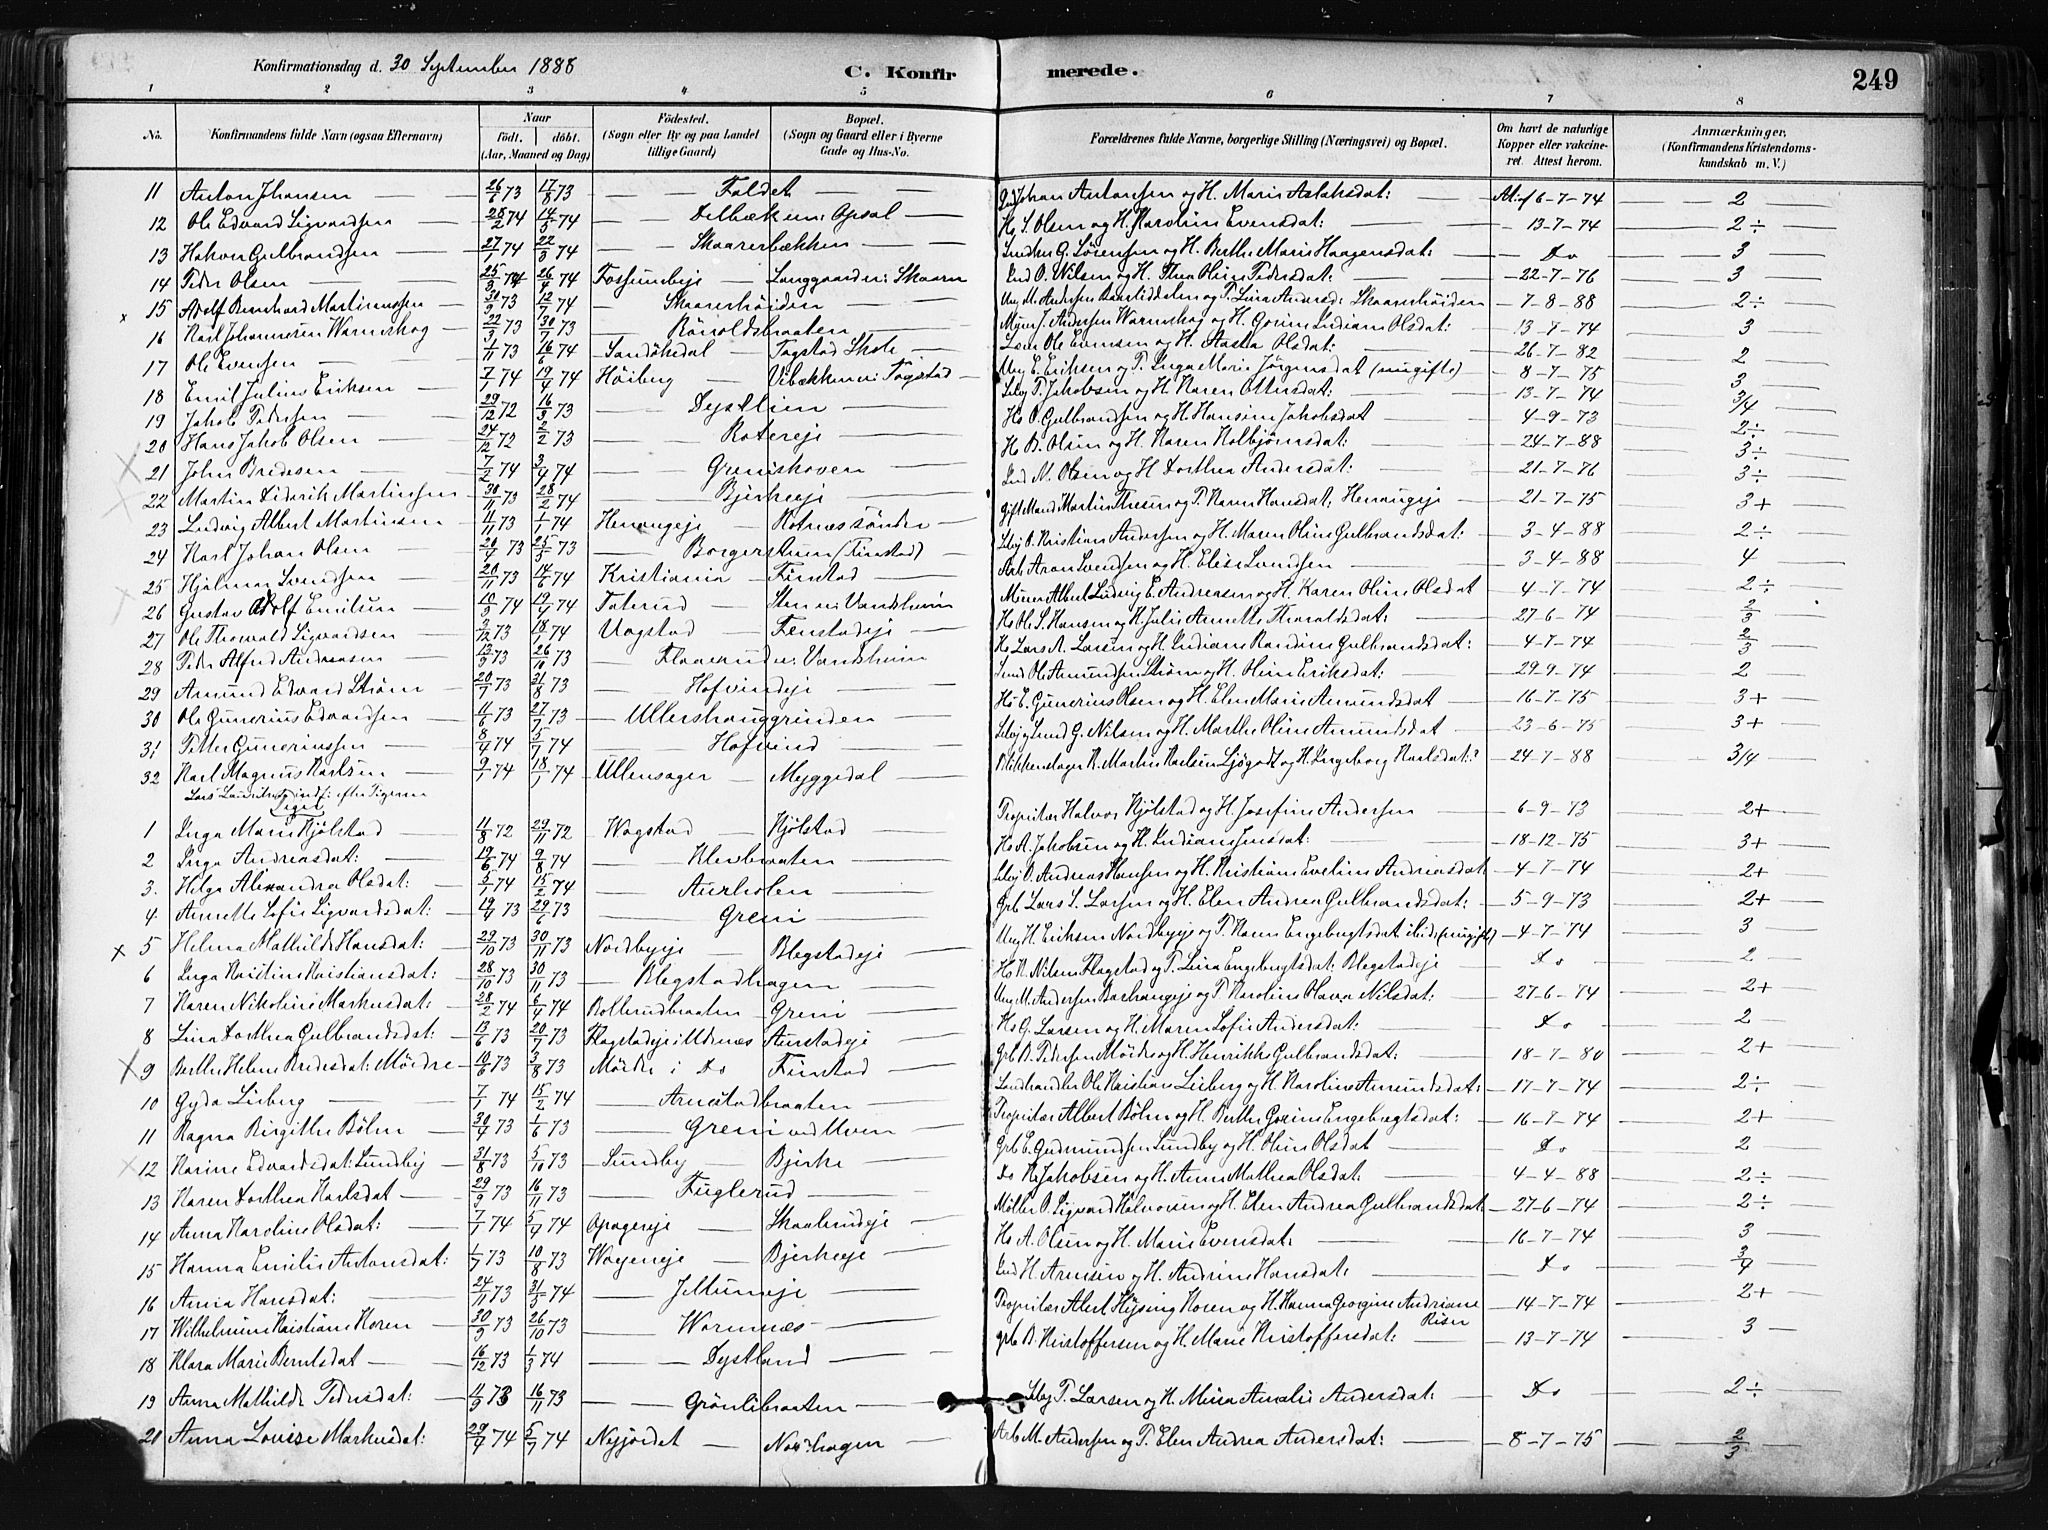 Konfirmationsdag d. 30 September 1888
C. Konfir merede. 249
1 2 3 4 5 6 7 8
No. Konfirmandens fulde Navn (ogsaa Efternavn) Naar født. døbt. (Aar, Maaned og Dag) Fødested. (Sogn eller By og paa Landet tillige Gaard) Bopæl. (Sogn og Gaard eller i Byerne Gade og Hus-No. Forældrenes fulde Navne, borgerlige Stilling (Næringsvei) og Bopæl. Om havt de naturlige Kopper eller vakcineret. Attest herom. Anmærkninger. (Konfirmandens Kristendomskundskab m. V.)
11 Anton Johansen — 26/6 73 17/8 73 — Faldet — Johan Antonsen og H. Marie Aslaksdat: 6-7-74 2
12 Ole Edvard Sigvardsen 28/2 74 14/5 74 — Delbækken: Opsal — Hs S. Olsen og H. Karoline Evensdat: — 13-7-74 2÷
13 Hakon Gulbrandsen 27/1 74 22/3 74 — Skaarerbækken — G. Sörensen og H. Berthe Marie Haagensdat: Do 3
14 Peder Olsen — 25/3 74 26/4 74 Fossumeje — Langgaarden: Skaarer Ind O. Nilsen og H. Thea Oline Pedersdat: — 22-7-76 3
x 15 Adolf Bernhard Martiniussen 30/9 73 12/7 74 — Skaarerhöiden — Ung M. Andersen og P. Lina Andersd: Skaarerhöiden 7-8-88 2÷
16 Karl Johannesen Warneskog 22/3 73 30/7 73 — Rönoldsbraaten — J. Andersen Warneskog og H. Gorine Indiane Olsdat: 13-7-74 3
17 Ole Evensen — 1/11 73 16/6 74 Sandökedal — Togstad Skole — Ole Evensen og H. Aasta Olsdat: — 26-7-82 2
18 Emil Julius Eriksen — 7/1 74 19/4 74 Höiberg — Vibækken: Togstad — Ung E. Eriksen og P. Inga Marie Jörgensdat (ungifte) — 8-7-75 3
19 Jakob Pedersen — 29/12 72 16/3 73 — Dystlien — P. Jakobsen og H. Karen Ottersdat: 13-7-74 3/4
20 Hans Jakob Olsen — 24/12 72 2/2 73 — Kotereje — Hs O. Gulbrandsen og H. Hansine Jakobsdat 4-9-73 2÷
21 John Bredesen — 7/2 74 3/4 74 — Grenishoven — Hs B. Olsen og H. Karen Kolbjörnsdat: 24-7-88 3÷
22 Martin Diderik Martinsen 30/11 73 28/2 74 — Bjerkeeje — Ind N. Olsen og H Dorthea Andersdat: 21-7-76 3÷
23 Ludvig Albert Martinsen 11/11 73 1/1 74 Henangeje — Kotnes söndre — gift Mand Martin og P. Karen Hansdat: Henangeje 21-7-75 3+
24 Karl Johan Olsen — 20/4 73 25/5 73 — Borgerstuen (Finstad) — O. Kristian Andersen og H. Maren Oline Gulbrandsdat: 3-4-88 2÷
25 Hjalmar Svendsen 20/11 73 14/6 74 Kristiania — Finstad — Arb Aron Svendsen og H. Elise Svendsen — 3-4-88 4
26 Gustav Adolf Emilsen — 10/3 74 19/4 74 Taterud — Sten: Vandsheim Murer Albert Ludvig E. Andreasen og H. Karen Oline Olsdat 4-7-74 2÷
27 Ole Thorvald Sigvardsen 2/12 73 18/1 74 Vogstad — Finstadeje — Hs Ole S. Hansen og H Julie Annette Tharaldsdat: 27-6-74 2/3
28 Peder Alfred Andersen 13/9 73 26/10 73 — Flaaerud: Vandsheim Hs Lars A. Larsen og H. Indiane Randine Gulbrandsdat: 4-7-74 2/3
29 Amund Edvard Ström — 20/7 73 31/8 73 — Hofvindeje — Ole Amundsen Ström og H. Oline Eriksdat: 29-9-74 2
30 Ole Gunerius Edvardsen 11/6 73 27/7 73 — Ullershauggrinden Hs E. Gunerius Olsen og H. Elen Marie Amundsdat — 16-7-75 3+
31 Petter Gunerinssen — 8/4 74 5/7 74 — Hofvind — G. Nilsen og H. Marthe Oline Amundsdat — 23-6-75 3+
32 Karl Magnus Karlsen — 9/1 74 18/1 74 Ullensager — Myggedal — Blikkenslager K. Martin Karlsen Ljögodt og H. Ingeborg Karlsdat: 24-7-88 3/4
Piger
1 Inga Marie Kjölstad — 11/8 72 29/11 72 Wogstad — Kjölstad — Proprietær Halvor Kjölstad og H. Josefine Andersen — 6-9-73 2+
2 Inga Andreasdat: — 19/6 74 9/8 74 — Klevbraaten — Hs A. Jakobsen og H. Indiane Jensdat: — 18-12-75 3+
3. Helga Alexandra Olsdat: 5/1 74 15/2 74 — Aurholen — O. Andreas Hansen og H. Kristiane Eveline Andreasdat 4-7-74 2+
4. Annette Sofie Sigvardsdat: 19/4 73 29/6 73 — Greni — Grb Lars S. Larsen og H. Elen Andrea Gulbrandsdat: 5-9-73 2+
x 5 Helena Mathilde Hansdat: 29/10 73 30/11 73 Nordbyeje — Blegstadeje Ung H. Eriksen Nordbyeje og P. Karen Engebregtsdat ibid: (ungifte) 4-7-74 3
6 Inga Kristine Kristiansdat: 28/10 73 30/11 73 — Blegstadhagen — Hs K. Nilsen Flagstad og P. Lina Engebregtsdat: Blegstadeje Do 2
7 Karen Nikoline Markusdat: 28/2 74 6/4 74 Bollerudbraaten — Greni — Ung M. Andersen og P. Karoline Olava Nilsdat: 27-6-74 2+
8 Lina Dorthea Gulbrandsdat: 13/6 73 20/7 73 Flagstadeje i Udenæs Aurstadeje Hs G. Larsen og H. Maren Sofie Andersdat: Do 2
x 9 Berthe Helene Bredesdat: Möidre 10/6 73 3/8 73 Möidre i Do Finstad — Grb B. Pedersen Möidre og H. Henrikke Gulbrandsdat: 18-7-80 2+
10 Gyda Lieberg — 7/1 74 15/2 74 — Arnestadbraaten — Landhandler Ole Kristian Lieberg og H. Karoline Amundsdat: 17-7-74 2÷
11 Ragna Birgitte Böhn — 30/4 73 1/6 73 — Greni ved Uven — Proprietær Albert Böhn og H. Berthe Gorine Engebregtsdat: 16-7-74 2+
12 Karine Edvardsdat: Sundby 31/8 73 5/10 73 Sundby — Bjerke — Grb E. Gudmundsen Sundby og H. Oline Olsdat — Do 2
13 Karen Dorthea Karlsdat — 29/9 73 16/11 73 — Fuglerud — Do K. Jakobsen og H. Anne Mathea Olsdat: — 4-4-88 2÷
14 Anna Karoline Olsdat: 7/1 74 5/4 74 Opageseje — Skaarerudeje Möller O. Sigvard og H. Elen Andrea Gulbrandsdat 27-6-74 2÷
15 Hanna Emilie Antonsdat: 1/7 73 10/8 73 Wogeneje — Bjerkeeje — Hs A. Olsen og H. Marie Evensdat: — 16-7-74 3
16 Anna Hansdat: — 24/11 73 31/5 74 — Jeltuneje — Ind H. Arnesen og H. Andrine Hansdat: Do 3/4
17 Wilhelmine Kristiane Koren 30/9 73 26/10 73 — Warnnæs — Proprietær Albert Höysing Koren og H. Hanna Georgine Andriane Riser 14-7-74 2+
18 Klara Marie Berntsdat — 16/12 73 1/3 74 — Dystland — grb B. Kristoffersen og H. Marie Kristoffersdat: 13-7-74 3
19 Anna Mathilde Pedersdat: 11/9 73 16/11 73 — Grönlibraaten — P. Larsen og H. Mina Amalie Andersdat: Do 2÷
21 Anna Lovise Markusdat: 29/4 74 5/7 74 Nyjordet — Nordhagen — Arb M. Andersen og P. Elen Andrea Andersdat: 8-7-75 2/3